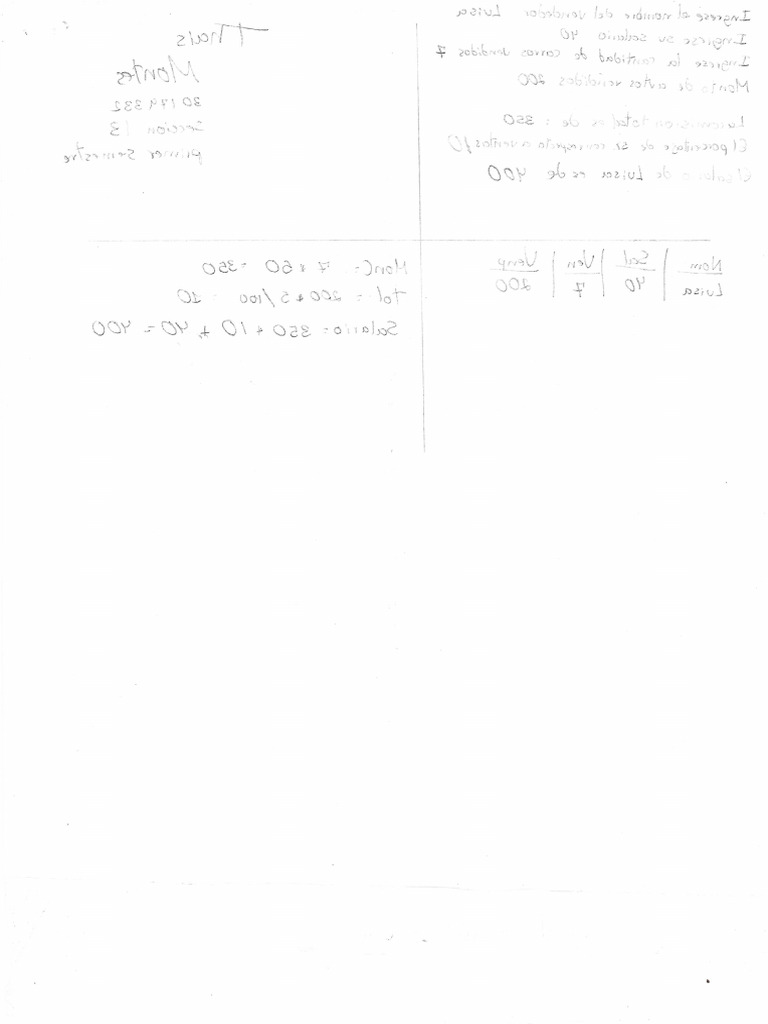 Ingrese el nombre del vendedor Luisa
Ingrese su salario 40
Ingrese la cantidad de carros vendidos 7
Monto de autos vendidos 200
La comision total es de : 350
El porcentaje de su correspecto a ventas 10
El salario de Luisa es de 400
Thais
Montes
30179332
Seccion 13
primer semestre
Nom | Sal | Ven | Vemp
Luisa | 40 | 7 | 200
MonC = 7 * 50 = 350
tol = 200 * 5 / 100 = 10
Salario = 350 + 10 + 40 = 400